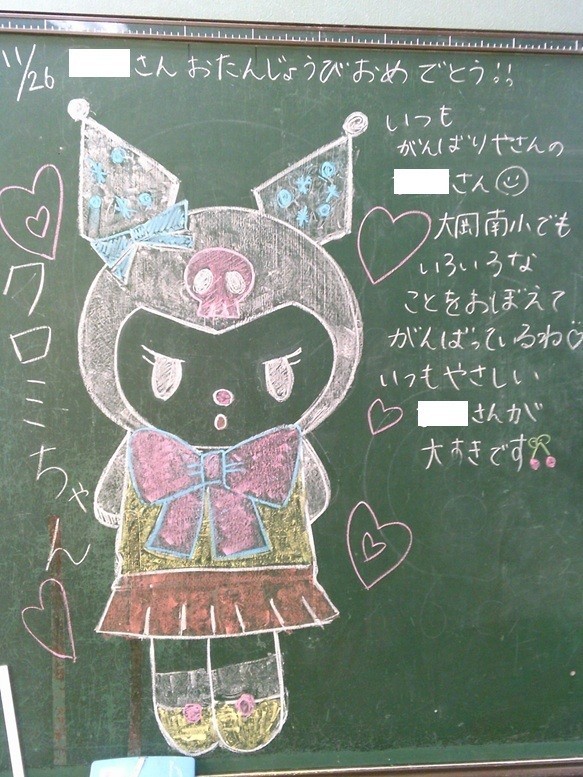 11/26 さん おたんじょうびおめでとう!!
いつも
がんばりやさんの
さん
大岡南小でも
いろいろな
ことをおぼえて
がんばっているね♡
いつもやさしい
さんが
大すきです
クロミちゃん